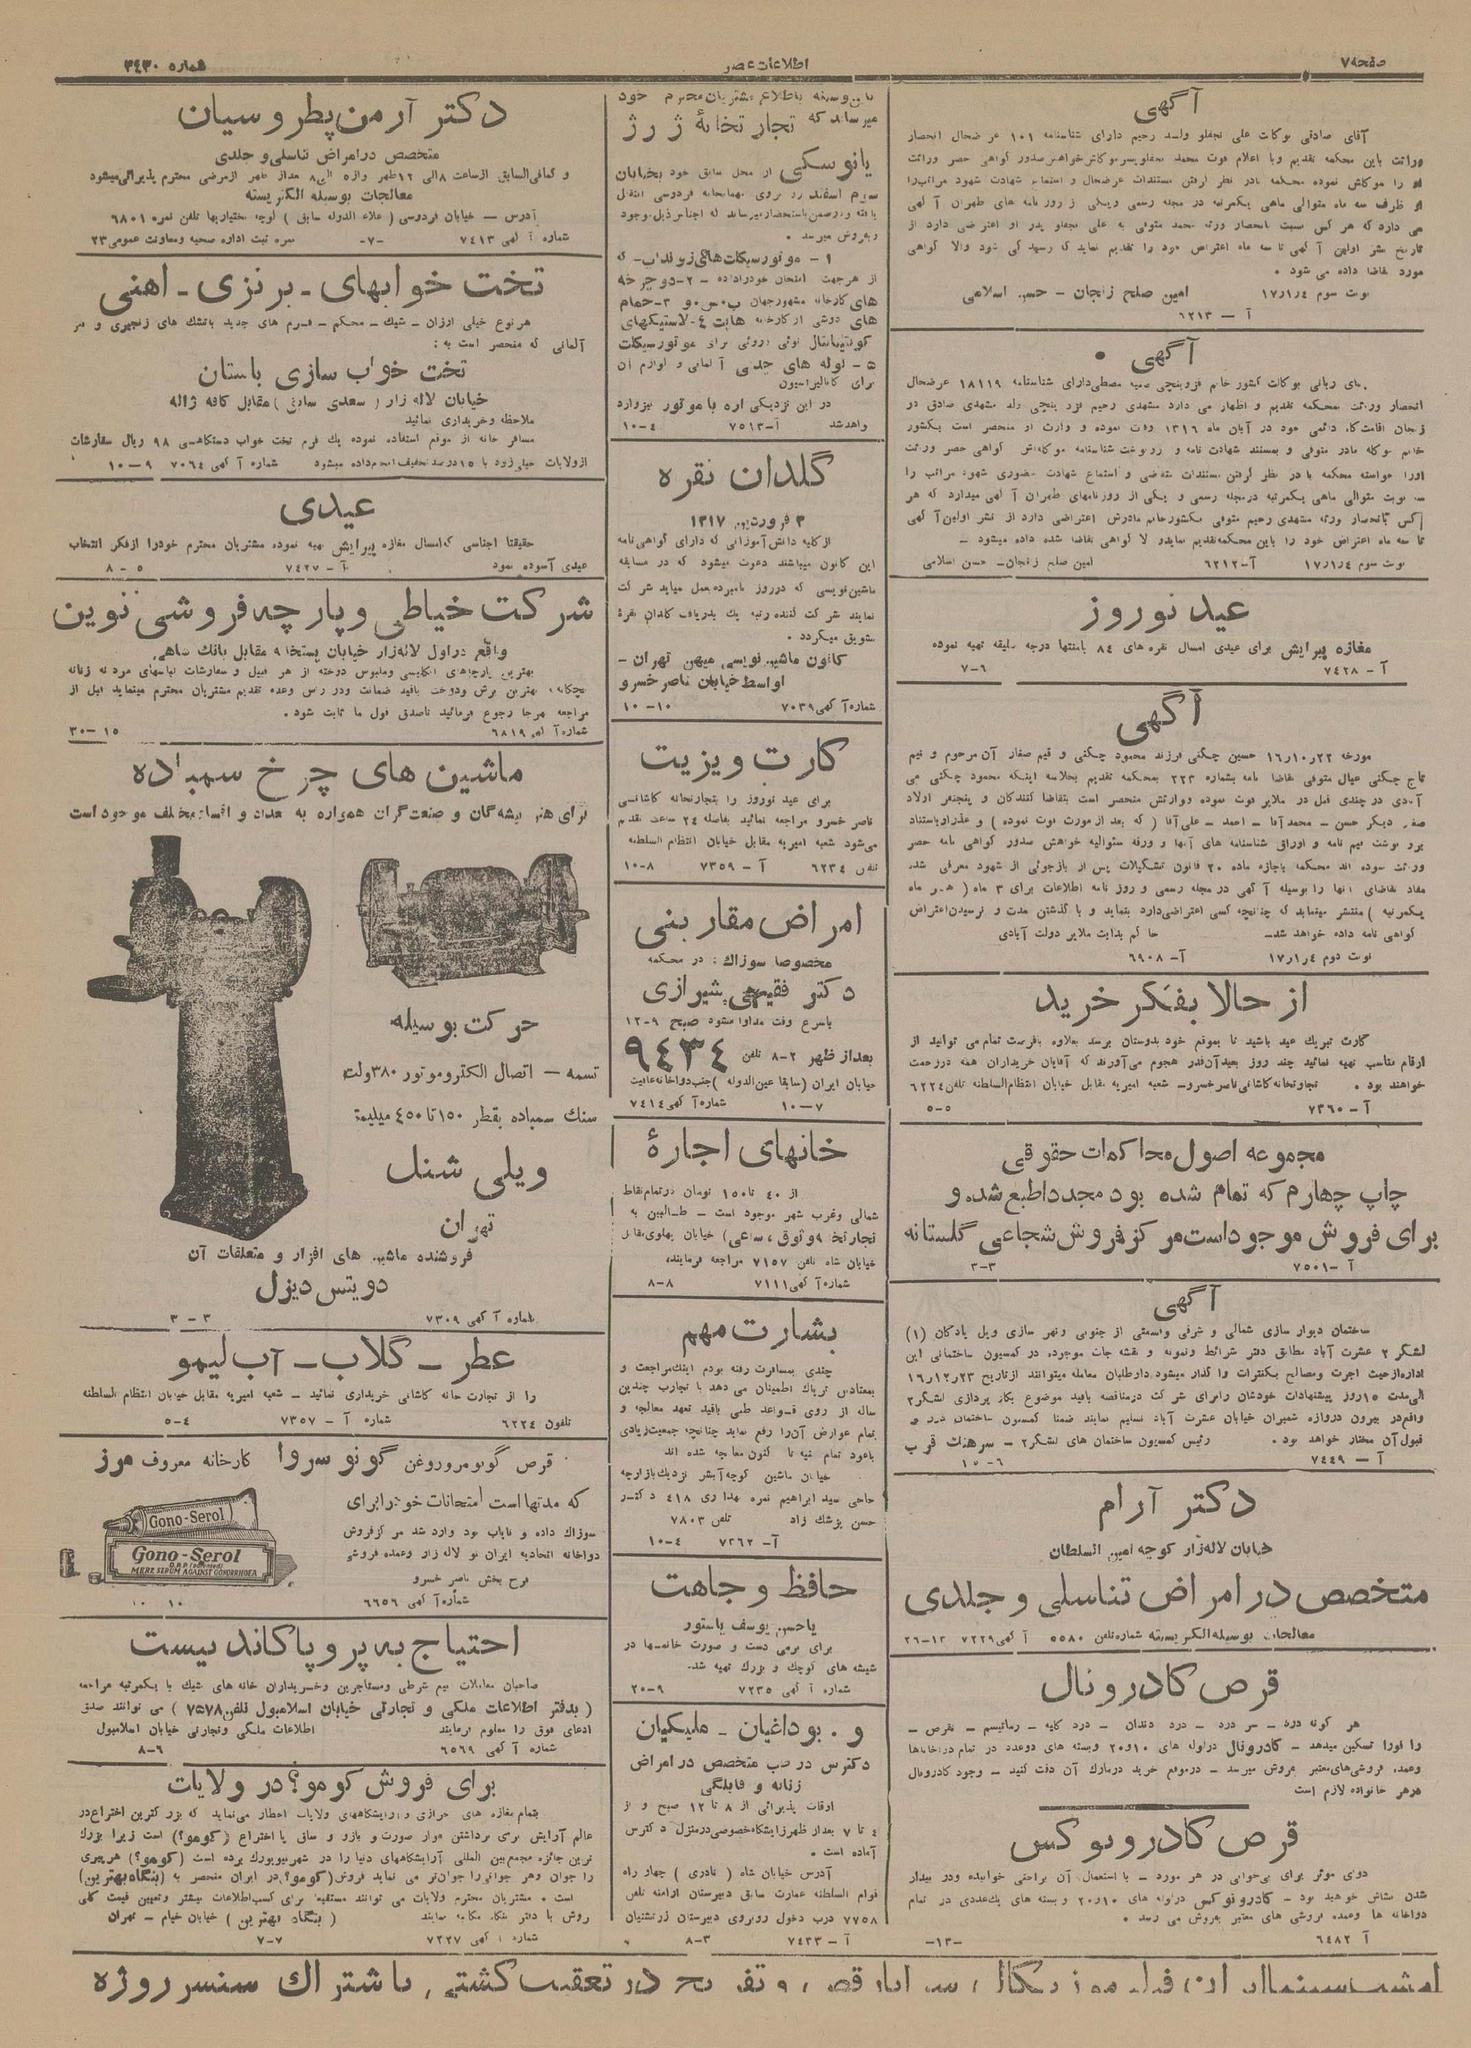 صفحه ۷
اطلاعات عصر
شماره ۳۴۳۰
آگهی
آقای صادقی بوکالت علی نجفلو ولد رحیم دارای شناسنامه ۱۰۱ عرضحال انحصار
وراثت باین محکمه تقدیم وبا اعلام فوت محمد نجفلو پسر موکلش خواهش صدور گواهی حصر وراثت
را موکلش نموده محکمه بادر نظر گرفتن مستندات عرضحال و استماع شهادت شهود مراتب را
ظرف سه ماه متوالی ماهی یکمرتبه در مجله رسمی ویکی از روزنامه های طهران آگهی
می دارد که هر کس نسبت بانحصار ورثه محمد متوفی به علی نجفلو پدر او اعتراضی دارد از
تاریخ نشر اولین آگهی تا سه ماه اعتراض خود را تقدیم نماید که رسید گی شود والا گواهی
مورد تقاضا داده می شود .
نوبت سوم ۱۷ر۱ر۴ امین صلح زنجان - حسن اسلامی
آ – ۶۲۱۳
آگهی
آقای ربانی بوکالت کشور خانم قزوینچی صبیه مصطفی دارای شناسنامه ۱۸۱۱۹ عرضحال
انحصار وراثت بمحکمه تقدیم و اظهار می دارد مشهدی رحیم قزوینچی ولد مشهدی صادق در
زنجان اقامتگاه دائمی خود در آبان ماه ۱۳۱۶ فوت نموده و وارث او منحصر است بکشور
خانم موکله مادر متوفی و بمستند شهادت نامه و رونوشت شناسنامه موکله‌اش گواهی حصر وراثت
اورا خواسته محکمه با در نظر گرفتن مستندات متقاضی و استماع شهادت حضوری شهود مراتب را
سه نوبت متوالی ماهی یکمرتبه درمجله رسمی و یکی از روزنامهای طهران آگهی میدارد که هر
کس بانحصار ورثه مشهدی رحیم متوفی بکشور خانم مادرش اعتراضی دارد از نشر اولین آگهی
تا سه ماه اعتراض خود را باین محکمه تقدیم نماید والا گواهی تقاضا شده داده میشود –
نوبت سوم ۱۷ر۱ر۴ آ–۶۲۱۲ امین صلح زنجان- حسن اسلامی
عید نوروز
مغازه پیرایش برای عیدی امسال نقره های ۸۴ بامنتها درجه سلیقه تهیه نموده
آ – ۷۴۲۸ ۶–۷
آگهی
مورخه ۲۲ر۱۰ر۱۶ حسین چگنی فرزند محمود چگنی و قیم صغار آن مرحوم و نیم
تاج چگنی عیال متوفی تقاضا نامه بشماره ۲۲۳ بمحکمه تقدیم بخلاصه اینکه محمود چگنی می
آبادی در چندی قبل در ملایر فوت نموده ووارثش منحصر است بتقاضا کنندگان و پنجنفر اولاد
صغار دیگر حسن – محمدآقا – احمد – علی‌آقا ( که بعد از مورث فوت نموده ) و عذرا و باستناد
رو نوشت قیم نامه و اوراق شناسنامه های آنها و ورقه سئوالیه خواهش صدور گواهی نامه حصر
وراثت نموده اند محکمه باجازه ماده ۲۰ قانون تشکیلات پس از بازجوئی از شهود معرفی شده
مفاد تقاضای آنها را بوسیله آگهی در مجله رسمی و روز نامه اطلاعات برای ۳ ماه ( هر ماه
یکمرتبه ) منتشر مینماید که چنانچه کسی اعتراضی دارد بنماید و با گذشتن مدت و نرسیدن اعتراض
گواهی نامه داده خواهد شد– حاکم بدایت ملایر دولت آبادی
نوبت دوم ۱۷ر۱ر۴ آ– ۶۹۰۸
از حالا بفکر خرید
کارت تبریك عید باشید تا بموقع خود بدوستان برسد بعلاوه بافرصت تمام می توانید از
ارقام مناسب تهیه نمائید چند روز بعید آنقدر هجوم می‌آورند که آقایان خریداران همه در زحمت
خواهند بود . تجارتخانه کاشانی ناصرخسرو– شعبه امیریه مقابل خیابان انتظام السلطنه تلفن ۶۲۲۴
آ–۷۳۶۰ ۵–۵
مجموعه اصول محاکمات حقوقی
چاپ چهارم که تمام شده بود مجددا طبع شده و
برای فروش موجود است مرکز فروش شجاعی گلستانه
آ –۷۵۰۱ ۳–۳
آگهی
ساختمان دیوار سازی شمالی و شرقی وقسمتی از جنوبی ونهر سازی ویل پادگان (۱)
لشگر ۲ عشرت آباد مطابق دفتر شرائط ونمونه و نقشه جات موجوده در کمسیون ساختمانی این
اداره از حیث اجرت ومصالح بکنترات وا گذار میشود.داوطلبان معامله میتوانند از تاریخ ۲۳ر۱۲ر۱۶
الی‌مدت ۱۵روز پیشنهادات خودشان رابرای شرکت درمناقصه باقید موضوع بکار پردازی لشگر۲
واقع‌در بیرون دروازه شمیران خیابان عشرت آباد تسلیم نمایند ضمنا کمسیون ساختمان در رد و
قبول آن مختار خواهد بود . رئیس کمسیون ساختمان های لشگر۲ – سرهنگ قرب
آ – ۷۴۴۹ ۶–۱۵
دکتر آرام
خیابان لاله‌زار کوچه امین السلطان
متخصص در امراض تناسلی و جلدی
معالجات بوسیله الکتریسته شماره تلفن ۵۵۸۰ آگهی ۷۲۲۹ ۱۳–۲۶
قرص کادرونال
هر گونه درد – سر درد – درد دندان – درد کلیه – رماتیسم – نقرس –
را فورا تسکین میدهد – کادرونال درلوله های ۱۰و۲۰ وبسته های دوعدد در تمام دواخانه‌ها
وعمده فروشی‌های معتبر بفروش میرسد – درموقع خرید درمارك آن دقت کنید – وجود کادرونال
درهر خانواده لازم است
قرص کادرونوکس
دوای موثر برای بی‌خوابی در هر مورد – با استعمال آن براحتی خوابیده ودر بیدار
شدن بشاش خواهید بود – کادرونوکس درلوله های ۱۰و۲۰ وبسته های یك‌عددی در تمام
دواخانه ها وعمده فروشی های معتبر بفروش می رسد .
آ ۶۴۸۲ –۱۳–
باین وسیله باطلاع مشتریان محترم خود
میرساند که تجارتخانهٔ ژرژ
یانوسکی از محل سابق خود بخیابان
سوم اسفند رو بروی مهمانخانه فردوسی انتقال
یافته ودرضمن باستحضار میرساند که اجناس ذیل موجود
وبفروش میرسد .
۱ – موتورسیکلت‌های زونداپ– که
از هرجهت امتحان خودراداده – ۲–دوچرخه
های کارخانه مشهورجهان ب.س.و ۳–حمام
های دوشی از کارخانه هابت ۴–لاستیکهای
کونتیننتال توئی وروئی برای موتورسیکلت
۵ – لوله های چدنی آلمانی و لوازم آن
برای کانالیزاسیون
در این نزدیکی اره با موتور نیزوارد
خواهدشد آ–۷۵۱۳ ۴–۱۰
گلدان نقره
۳ فروردین ۱۳۱۷
از کلیه دانش آموزانی که دارای گواهی‌نامه
این کانون میباشند دعوت میشود که در مسابقه
ماشین‌نویسی که درروز نامبرده بعمل میاید شرکت
نمایند شرکت کننده رتبه یك بدریافت گلدان نقره
تشویق میگردد .
کانون ماشین نویسی میهن تهران –
اواسط خیابان ناصر خسرو
شماره آگهی ۷۰۳۹ ۱۰–۱۰
کارت ویزیت
برای عید نوروز را بتجارتخانه کاشانی
ناصر خسرو مراجعه نمائید بفاصله ۲۴ ساعت تقدیم
میشود شعبه امیریه مقابل خیابان انتظام السلطنه
تلفن ۶۲۳۴ آ– ۷۳۵۹ ۸–۱۰
امراض مقاربتی
مخصوصا سوزاك : در محکمه
دکتر فقیهی شیرازی
باسرع وقت مداوا میشود صبح ۹–۱۲
بعداز ظهر ۲–۸ تلفن ۹۴۳۴
خیابان ایران (سابقا عین‌الدوله ) جنب دواخانه عافیت
شماره آگهی ۷۴۱۴ ۷–۱۰
خانهای اجارهٔ
از ۴۰ تا ۱۵۰ تومان درتمام نقاط
شمالی وغرب شهر موجود است – طالبین به
تجارتخانه وثوق ، ساعی) خیابان پهلوی مقابل
خیابان شاه تلفن ۷۱۵۷ مراجعه فرمایند.
شماره آگهی ۷۱۱۱ ۸–۸
بشارت مهم
چندی بمسافرت رفته بودم اینك مراجعت و
بمعتادین تریاك اطمینان می دهد با تجارب چندین
ساله از روی قواعد طبی باقید تعهد معالجه و
تمام عوارض آن‌را رفع نماید چنانچه جمعیت زیادی
باعود تمام بنیه تا کنون معالجه شده اند
خیابان ماشین کوچه آبشر نزدیك بازارچه
حاجی سید ابراهیم نمره بهداری ۴۱۸ دکتر
حسن پزشك زاد تلفن ۷۸۰۳
آ– ۷۲۶۲ ۴–۱۰
حافظ وجاهت
یاحسن یوسف پاستور
برای نرمی دست و صورت خانمها در
شیشه های کوچك و بزرك تهیه شد.
شماره آگهی ۷۲۳۵ ۹–۲۰
و . بوداغیان – ملیکیان
دکترس در طب متخصص در امراض
زنانه و قابلگی
اوقات پذیرائی از ۸ تا ۱۲ صبح و از
۴ تا ۷ بعداز ظهرزایشگاه خصوصی درمنزل دکترس
آماده است .
آدرس خیابان شاه ( نادری ) چهار راه
قوام السلطنه عمارت سابق دبیرستان ارامنه تلفن
۷۷۵۸ درب دخول روبروی دبیرستان زرتشتیان
آ– ۷۴۳۳ ۳–۸
دکتر آرمن پطروسیان
متخصص در امراض تناسلی و جلدی
کمافی‌السابق ازساعت ۸الی ۱۲ظهر وازه الی۸ بعداز ظهر ازمرضی محترم پذیرائی میشود
معالجات بوسیله الکتریسته
آدرس – خیابان فردوسی ( علاء الدوله سابق ) کوچه بختیاریها تلفن نمره ۶۸۰۱
شماره آگهی ۷۴۱۳ –۷– نمره ثبت اداره صحیه ومعاونت عمومی ۲۳
تخت خوابهای – برنزی – آهنی
هرنوع خیلی ارزان – شیك – محکم – فرم های جدید باتشك های زنجیری و فنر
آلمانی که منحصر است به :
تخت خواب سازی باستان
خیابان لاله زار ( سعدی سابق ) مقابل کافه ژاله
ملاحظه وخریداری نمائید
مسافر خانه از موقع استفاده نموده یك فرم تخت خواب دستگاهی ۹۸ ریال سفارشات
ازولایات خیلی زود با ۱۵ درصد تخفیف انجام داده میشود شماره آگهی ۷۰۶۴ ۹–۱۰
عیدی
حقیقتا اجناسی که امسال مغازه پیرایش تهیه نموده مشتریان محترم خودرا ازفکر انتخاب
عیدی آسوده نمود آ– ۷۴۲۷ ۵–۸
شرکت خیاطی و پارچه فروشی نوین
واقع دراول لاله‌زار خیابان پستخانه مقابل بانك شاهی
بهترین پارچهای انگلیسی وملبوس دوخته از هر قبیل و سفارشات لباسهای مردانه زنانه
بچگانه بهترین برش ودوخت باقید ضمانت ودر راس وعده تقدیم مشتریان محترم مینماید قبل از
مراجعه بهرجا رجوع فرمائید تاصدق قول ما ثابت شود .
شماره آگهی ۶۸۱۹ ۱۵–۳۰
ماشین های چرخ سمباده
برای هنر پیشه‌گان و صنعت‌گران همواره به تعداد و اقسام مختلف موجود است
حرکت بوسیله
تسمه – اتصال الکتروموتور ۳۸۰ولت
سنك سمباده بقطر ۱۵۰ تا ۴۵۰ میلیمتر
ویلی شنل
تهران
فروشنده ماشین های افزار و متعلقات آن
دویتس دیزل
شماره آگهی ۷۳۰۹ ۳–۳
عطر – گلاب – آب لیمو
را از تجارت خانه کاشانی خریداری نمائید – شعبه امیریه مقابل خیابان انتظام السلطنه
تلفون ۶۲۲۴ شماره آ– ۷۳۵۷ ۴–۵
قرص گونومرو روغن گونوسروا کارخانه معروف مرز
که مدتها است امتحانات خودرابرای
سوزاك داده و نایاب بود وارد شد مرکز فروش
دواخانه اتحادیه ایران نو لاله زار وعمده فروشی
فرح بخش ناصر خسرو
شماره آگهی ۶۶۵۶ ۱۰ ۱۰
Gono-Serol
Gono-Serol
MERZ SERUM AGAINST GONORRHOEA
احتیاج به پروپاکاند نیست
صاحبان معاملات بیع شرطی ومستاجرین وخریداران خانه های شیك با یکمرتبه مراجعه
( بدفتر اطلاعات ملکی و تجارتی خیابان اسلامبول تلفن ۷۵۷۸ ) می توانند صدق
ادعای فوق را معلوم فرمایند اطلاعات ملکی وتجارتی خیابان اسلامبول
شماره آگهی ۶۵۶۹ ۶–۸
برای فروش کومو؟ در ولایات
بتمام مغازه های خرازی و آرایشگاههای ولایات اخطار می‌نماید که بزرگترین اختراع‌در
عالم آرایش برای برداشتن موار صورت و بازو و ساق پا اختراع (کومو؟) است زیرا بزرك
ترین جائزه مجمع بین المللی آرایشگاههای دنیا را در شهرنیویورك برده است (کومو؟) هر پیری
را جوان وهر جوانی‌را جوان‌تر می نماید فروش (کومو؟) در ایران منحصر به (بنگاه بهترین)
است . مشتریان محترم ولایات می توانند مستقیما برای کسب اطلاعات بیشتر وتعیین قیمت کلی
فروش با دفتر بنگاه مکاتبه نمایند ( بنگاه بهترین ) خیابان خیام – تهران
شماره آگهی ۷۲۲۷ ۷–۷
امشب سینما ایران فیلم موزیکال ، سراپا رقص ، و تفریح در تعقیب کشتی ، با شتراك سنسر روژه